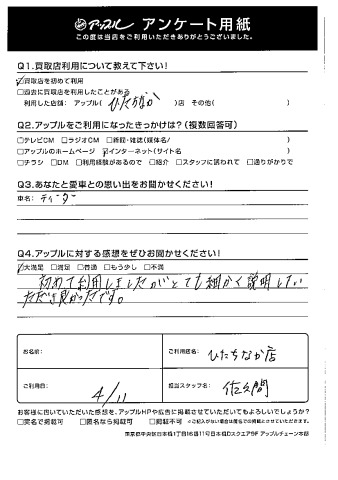 アップル アンケート用紙
この度は当店をご利用いただきありがとうございました。
Q1.買取店利用について教えて下さい!
☑買取店を初めて利用
□過去に買取店を利用したことがある
利用した店舗: アップル( ひたちなか )店 その他( )
Q2.アップルをご利用になったきっかけは?(複数回答可)
□テレビCM □ラジオCM □新聞・雑誌(媒体名/ )
□アップルのホームページ ☑インターネット(サイト名 )
□チラシ □DM □利用経験があるので □紹介 □スタッフに誘われて □通りがかりで
Q3.あなたと愛車との思い出をお聞かせください!
車名: ティーダ
Q4.アップルに対する感想をぜひお聞かせください!
☑大満足 □満足 □普通 □もう少し □不満
初めて利用しましたがとても細かく説明していただき良かったです。
お名前:
ご利用店名: ひたちなか店
ご利用日: 4/11
担当スタッフ名: 佐久間
お客様に書いていただいた感想を、アップルHPや広告に掲載させていただいてもよろしいでしょうか?
□実名で掲載可 □匿名なら掲載可 □掲載不可 ※ご記入がない場合は匿名での掲載とさせていただきます。
東京都中央区日本橋1丁目16番11号日本橋Dスクエア9F アップルチェーン本部